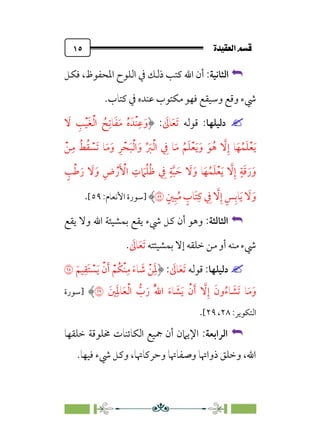 قسم العقيدة ١٥
الثانية: أن الله كتب ذلك في اللوح المحفوظ، فكل
شيء وقع وسيقع فهو مكتوب عنده في كتاب.
دليلها: قوله تَعَالَىٰ: ﴿وَعِنْدَهُ مَفَاتِحُ الْغَيْبِ لَا
يَعْلَمُهَا إِلَّا هُوَ وَيَعْلَمُ مَا فِي الْبَرِّ وَالْبَحْرِ وَمَا تَسْقُطُ مِنْ
وَرَقَةٍ إِلَّا يَعْلَمُهَا وَلَا حَبَّةٍ فِي ظُلُمَاتِ الْأَرْضِ وَلَا رَطْبٍ
وَلَا يَابِسٍ إِلَّا فِي كِتَابٍ مُبِينٍ ۝﴾ [سورة الأنعام: ٥٩].
الثالثة: وهو أن كل شيء يقع بمشيئة الله ولا يقع
شيء منه أو من خلقه إلا بمشيئته تَعَالَىٰ.
دليلها: قوله تَعَالَىٰ: ﴿لِمَنْ شَاءَ مِنْكُمْ أَنْ يَسْتَقِيمَ ۝
وَمَا تَشَاءُونَ إِلَّا أَنْ يَشَاءَ اللهُ رَبُّ الْعَالَمِينَ ۝﴾ [سورة
التكوير: ٢٨، ٢٩].
الرابعة: الإيمان أن جميع الكائنات مخلوقة خلقها
الله، وخلق ذواتها وصفاتها وحركاتها، وكل شيء فيها.